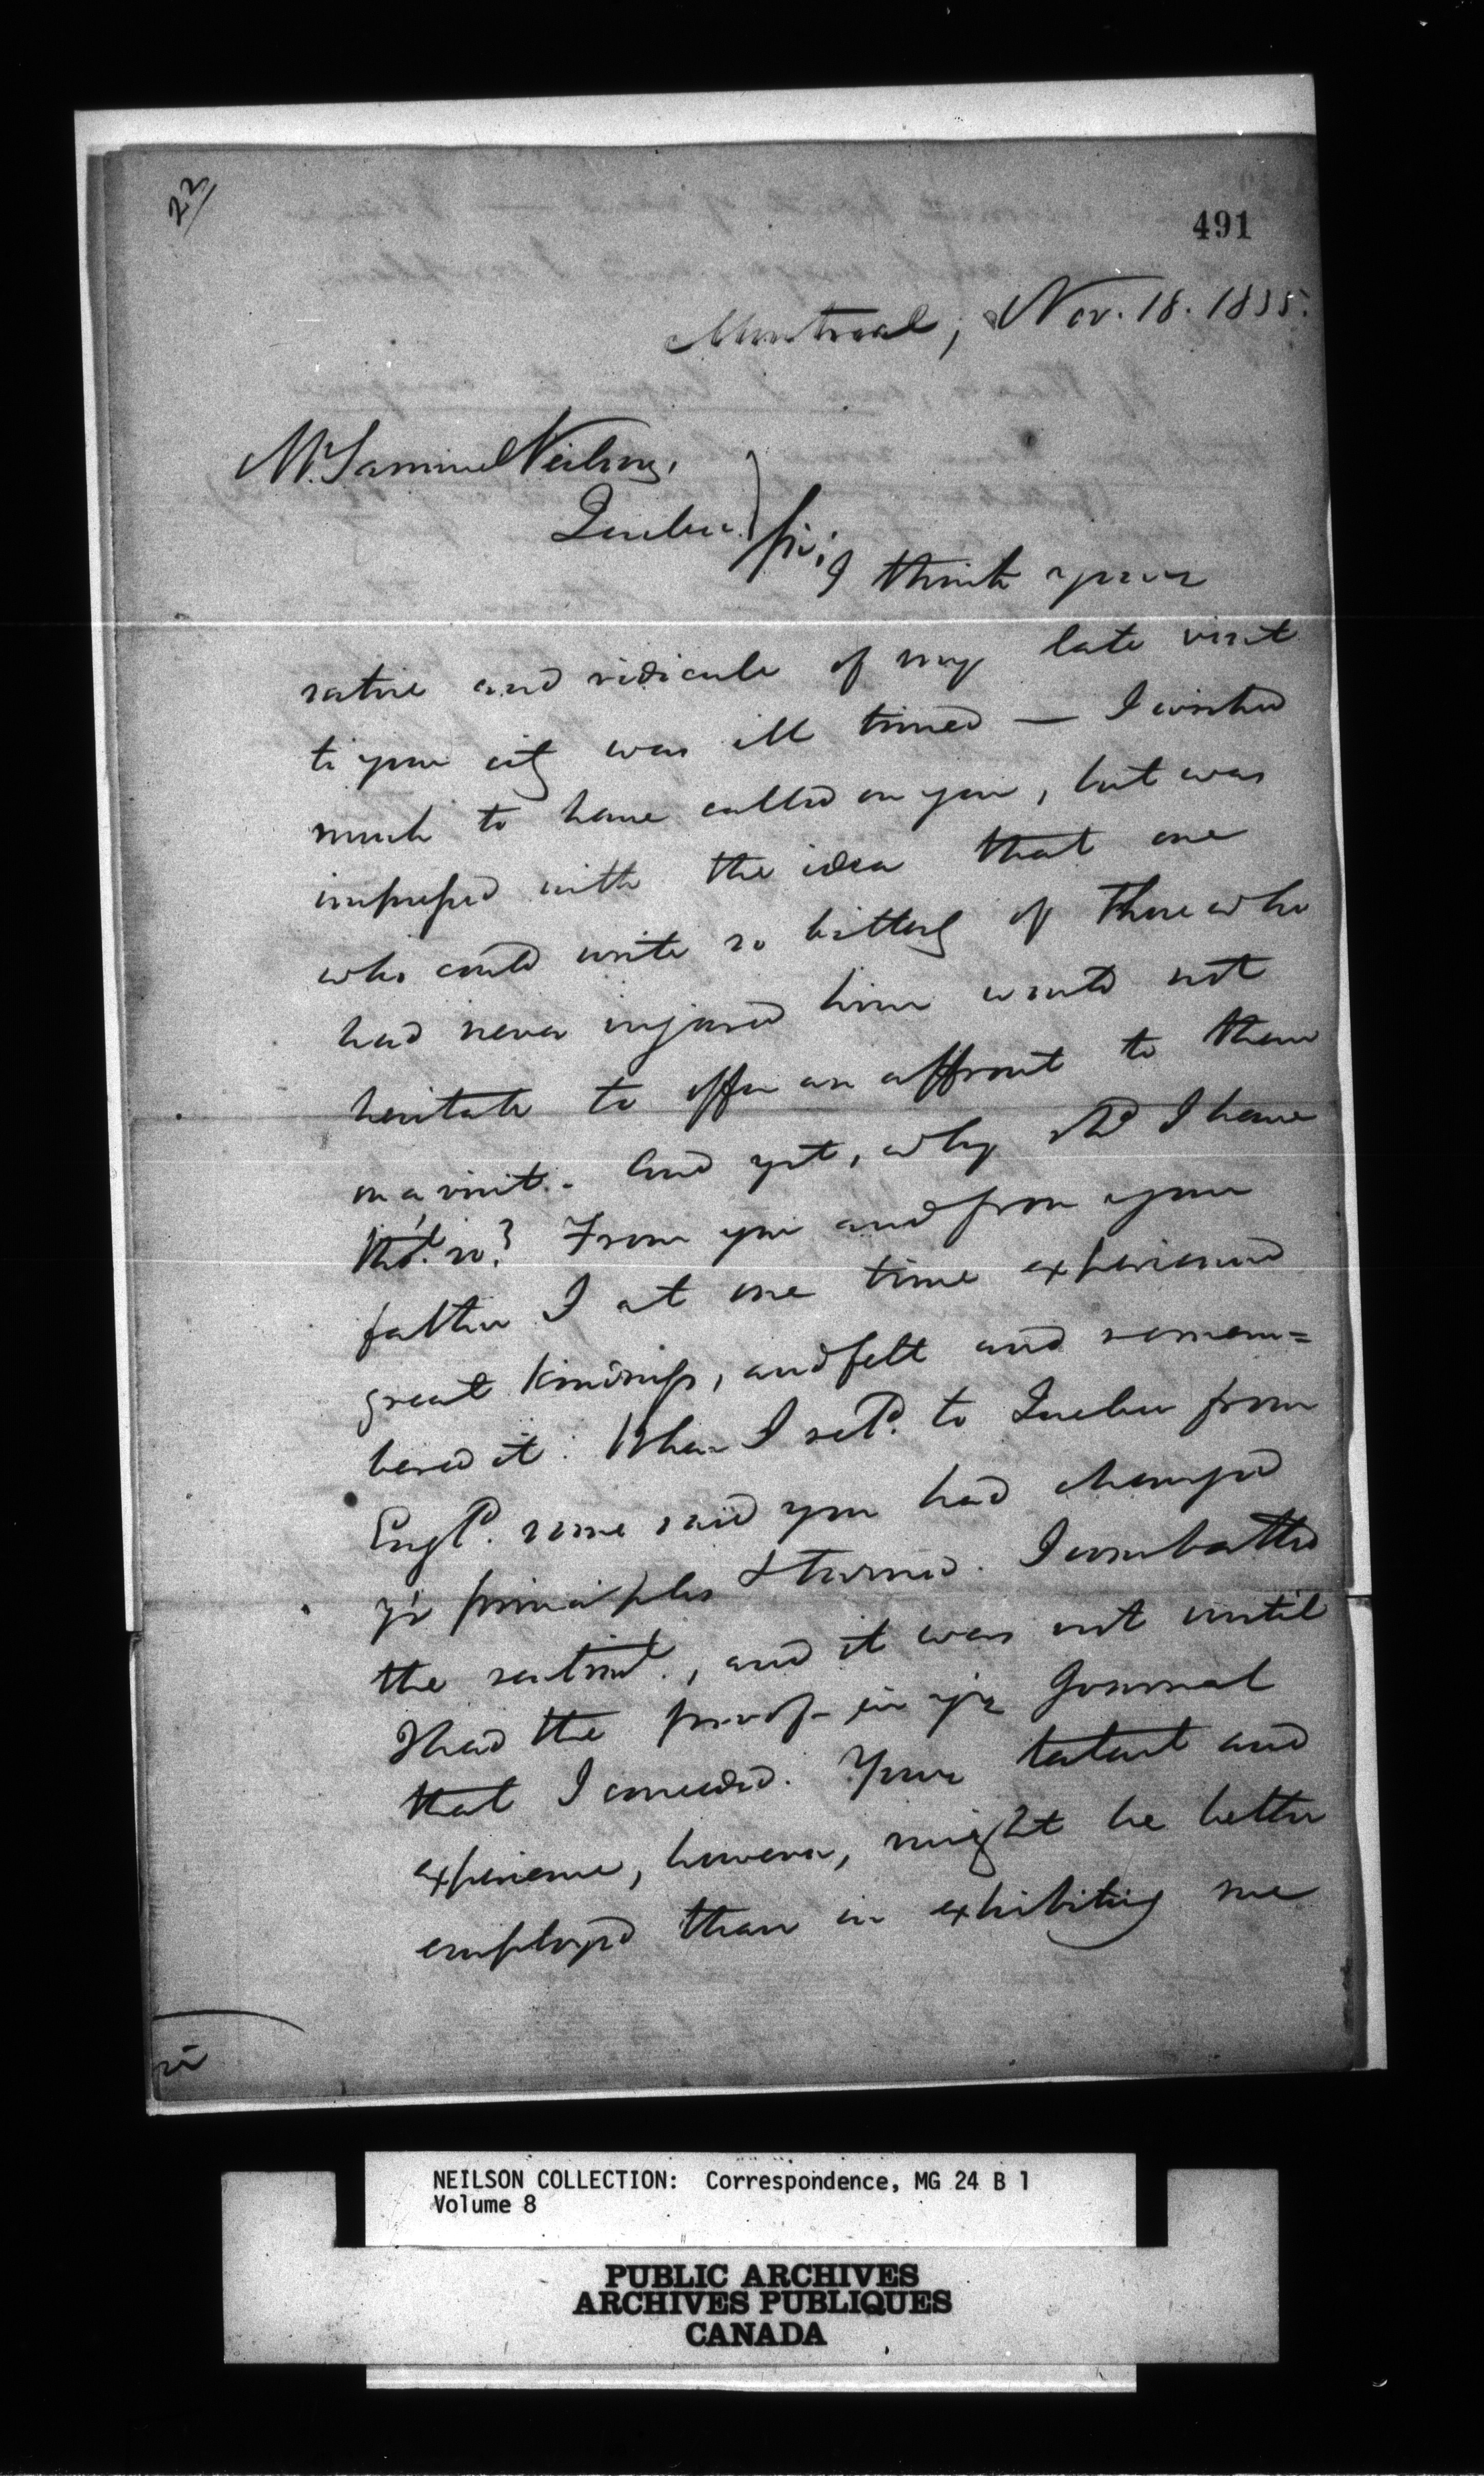 22/
491
Montreal, Nov. 18. 1835.
Mr. Samuel Neilson,
Quebec.
Sir; I think your
satire and ridicule of my late visit
to your city was ill timed — I wished
much to have called on you, but was
impressed with the idea that one
who could write so bitterly of those who
had never injured him would not
hesitate to offer an affront to them
on a visit. And yet, why shd I have
tho't so? From you and from your
father I at one time experienced
great kindness, and felt and remem=
bered it. When I retd. to Quebec from
Engld. some said you had changed
yr principles & turned. I combatted
the sentimt., and it was not until
I had the proof in yr Journal
that I conceded. Your talent and
experience, however, might be better
employed than in exhibiting me
NEILSON COLLECTION: Correspondence, MG 24 B 1
Volume 8
PUBLIC ARCHIVES
ARCHIVES PUBLIQUES
CANADA